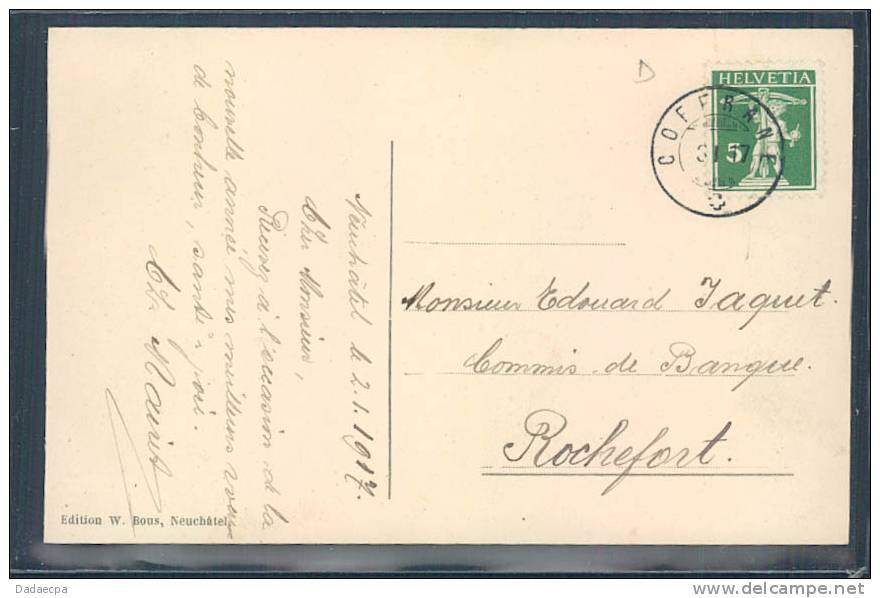 Neuchâtel le 2.1.1917.
Cher Monsieur,
Recevez à l'occasion de la
nouvelle année mes meilleurs voeux
de bonheur, santé & joie.
Edition W. Bous, Neuchâtel
D
HELVETIA
5
COFFRANE
Monsieur Edouard Jaquet.
Commis de Banque.
Rochefort.
Dadaecpa
www.delcampe.net